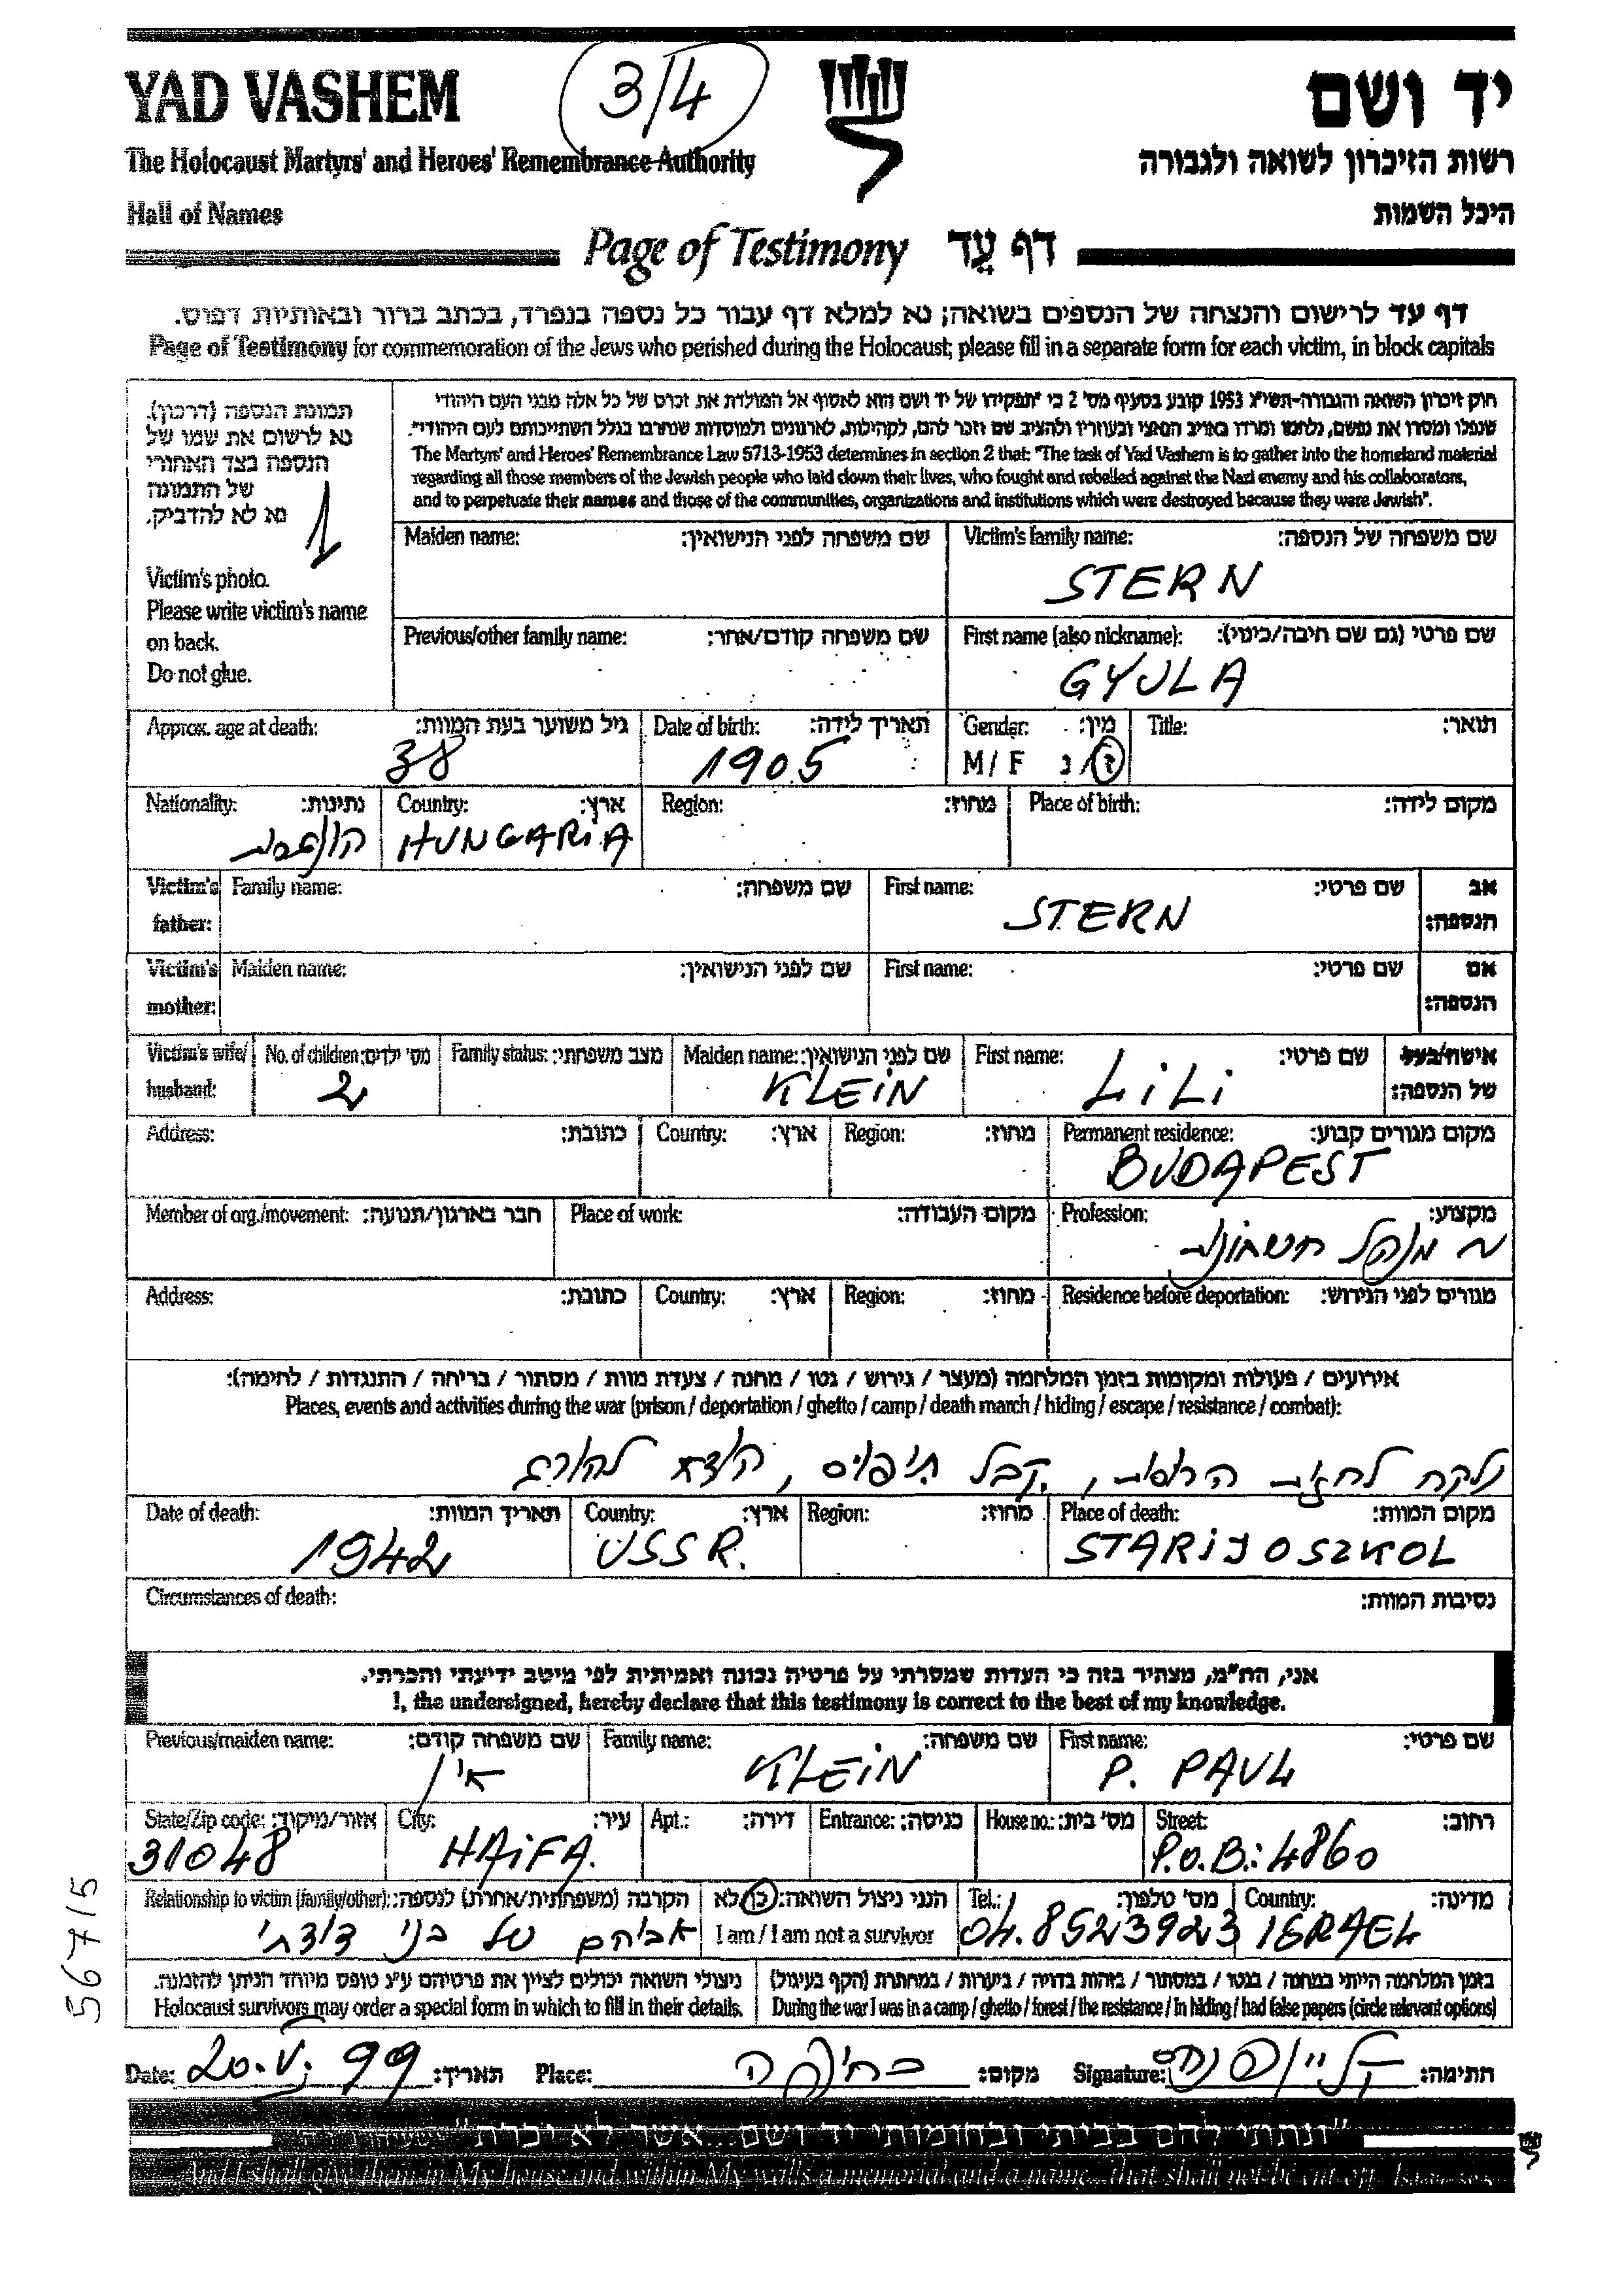 YAD VASHEM
3/4
יד ושם
The Holocaust Martyrs' and Heroes' Remembrance Authority
רשות הזיכרון לשואה ולגבורה
Hall of Names
היכל השמות
Page of Testimony דף עֵד
דף עד לרישום והנצחה של הנספים בשואה; נא למלא דף עבור כל נספה בנפרד, בכתב ברור ובאותיות דפוס.
Page of Testimony for commemoration of the Jews who perished during the Holocaust; please fill in a separate form for each victim, in block capitals
תמונת הנספה (דרכון).
נא לרשום את שמו של
הנספה בצד האחורי
של התמונה
נא לא להדביק.
Victim's photo.
Please write victim's name
on back.
Do not glue.
חוק זיכרון השואה והגבורה-תשי"ג 1953 קובע בסעיף מס' 2 כי "תפקידו של יד ושם הוא לאסוף אל המולדת את זכרם של כל אלה מבני העם היהודי
שנפלו ומסרו את נפשם, נלחמו ומרדו באויב הנאצי ובעוזריו ולהציב שם וזכר להם, לקהילות, לארגונים ולמוסדות שנחרבו בגלל השתייכותם לעם היהודי".
The Martyrs' and Heroes' Remembrance Law 5713-1953 determines in section 2 that: "The task of Yad Vashem is to gather into the homeland material
regarding all those members of the Jewish people who laid down their lives, who fought and rebelled against the Nazi enemy and his collaborators,
and to perpetuate their names and those of the communities, organizations and institutions which were destroyed because they were Jewish".
Maiden name: שם משפחה לפני הנישואין: Victim's family name: שם משפחה של הנספה:
STERN
Previous/other family name: שם משפחה קודם/אחר: First name (also nickname): שם פרטי (גם שם חיבה/כינוי):
GYULA
Approx. age at death: גיל משוער בעת המוות: Date of birth: תאריך לידה: Gender: מין: Title: תואר:
38 1905 M / F ז/נ
Nationality: נתינות: Country: ארץ: Region: מחוז: Place of birth: מקום לידה:
הונגרית HUNGARiA
Victim's father: Family name: שם משפחה: First name: שם פרטי: אב הנספה:
STERN
Victim's mother: Maiden name: שם לפני הנישואין: First name: שם פרטי: אם הנספה:
Victim's wife/ husband: No. of children: מס' ילדים: Family status: מצב משפחתי: Maiden name: שם לפני הנישואין: First name: שם פרטי: אישה/בעל של הנספה:
2 KLEiN LiLi
Address: כתובת: Country: ארץ: Region: מחוז: Permanent residence: מקום מגורים קבוע:
BUDAPEST
Member of org./movement: חבר בארגון/תנועה: Place of work: מקום העבודה: Profession: מקצוע:
מנהל חשבונות
Address: כתובת: Country: ארץ: Region: מחוז: Residence before deportation: מגורים לפני הגירוש:
אירועים / פעולות ומקומות בזמן המלחמה (מעצר / גירוש / גטו / מחנה / צעדת מוות / מסתור / בריחה / התנגדות / לחימה):
Places, events and activities during the war (prison / deportation / ghetto / camp / death march / hiding / escape / resistance / combat):
נלקח לחזית הרוסית, קבל טיפוס, הוצא להורג
Date of death: תאריך המוות: Country: ארץ: Region: מחוז: Place of death: מקום המוות:
1942 USSR. STARiJ OSZKOL
Circumstances of death: נסיבות המוות:
אני, הח"מ, מצהיר בזה כי העדות שמסרתי על פרטיה נכונה ואמיתית לפי מיטב ידיעתי והכרתי.
I, the undersigned, hereby declare that this testimony is correct to the best of my knowledge.
Previous/maiden name: שם משפחה קודם: Family name: שם משפחה: First name: שם פרטי:
אין KLEiN P. PAUL
State/Zip code: אזור/מיקוד: City: עיר: Apt.: דירה: Entrance: כניסה: House no.: מס' בית: Street: רחוב:
31048 HAiFA. P.O.B.: 4860
Relationship to victim (family/other): הקרבה (משפחתית/אחרת) לנספה: הנני ניצול השואה: כן לא Tel.: מס' טלפון: Country: מדינה:
אביהם של בני דודתי I am / I am not a survivor 04.8523923 ISRAEL
ניצולי השואה יכולים לציין את פרטיהם ע"ג טופס מיוחד הניתן להזמנה. בזמן המלחמה הייתי במחנה / בגטו / במסתור / בזהות בדויה / ביערות / במחתרת (הקף בעיגול)
Holocaust survivors may order a special form in which to fill in their details. During the war I was in a camp / ghetto / forest / the resistance / in hiding / had false papers (circle relevant options)
Date: 20.V.99 תאריך: Place: בחיפה מקום: Signature: קליין פול חתימה:
"ונתתי להם בביתי ובחומותי יד ושם...אשר לא יכרת"
And I shall give them in My house and within My walls a memorial and a name...that shall not be cut off.
56715